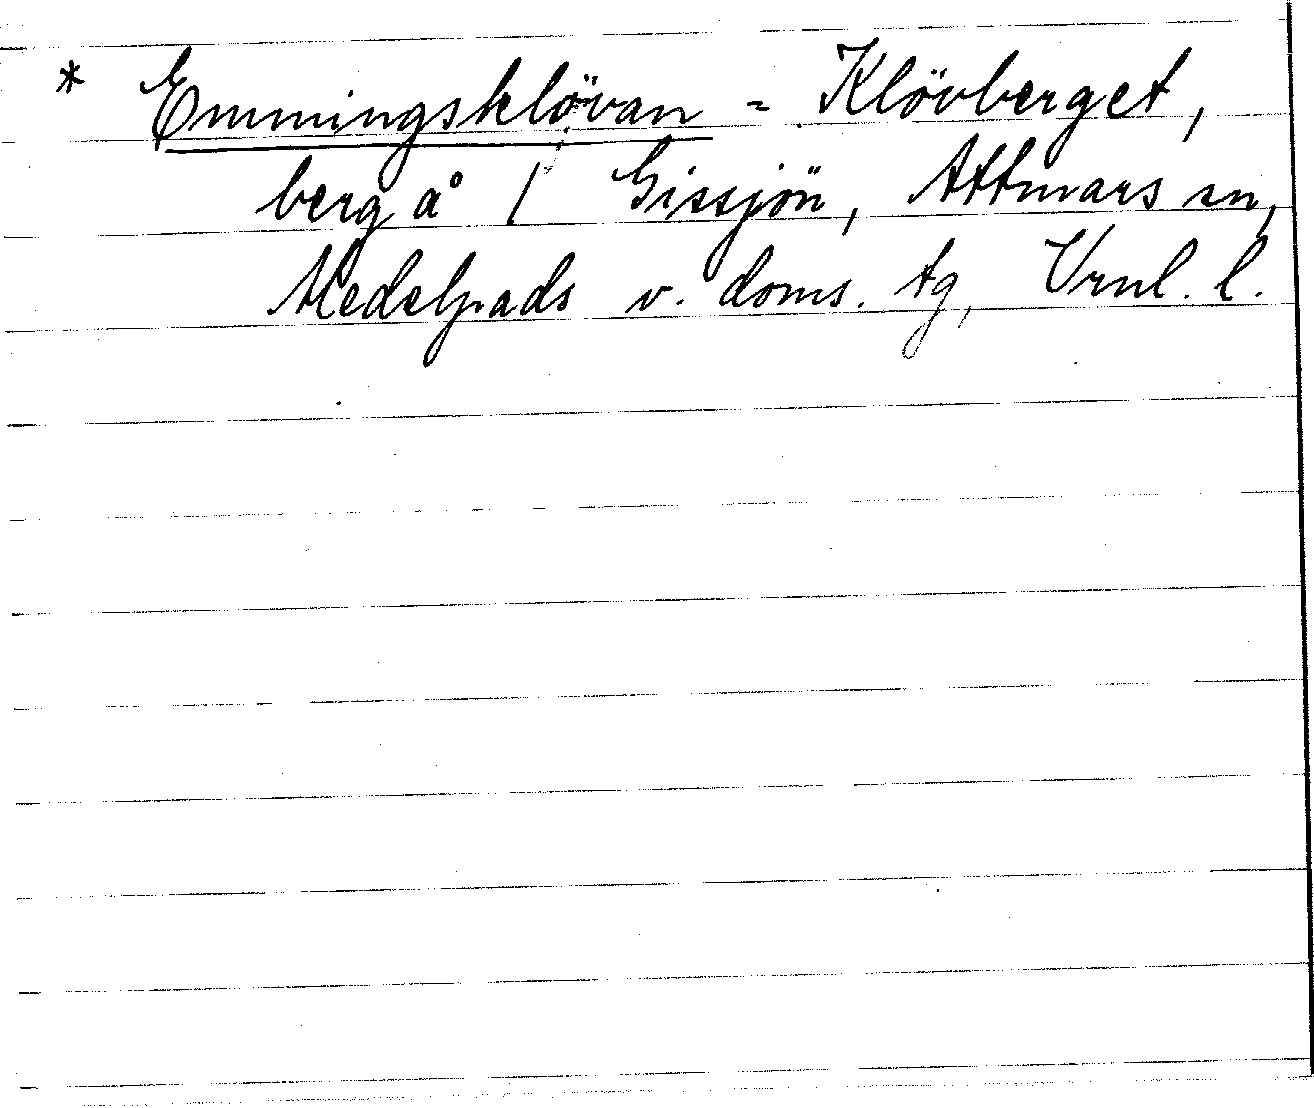 * Emmingsklövan = Klövberget,
berg å / Gissjön, Attmars sn,
Medelpads v. doms. tg, Vrnl. l.